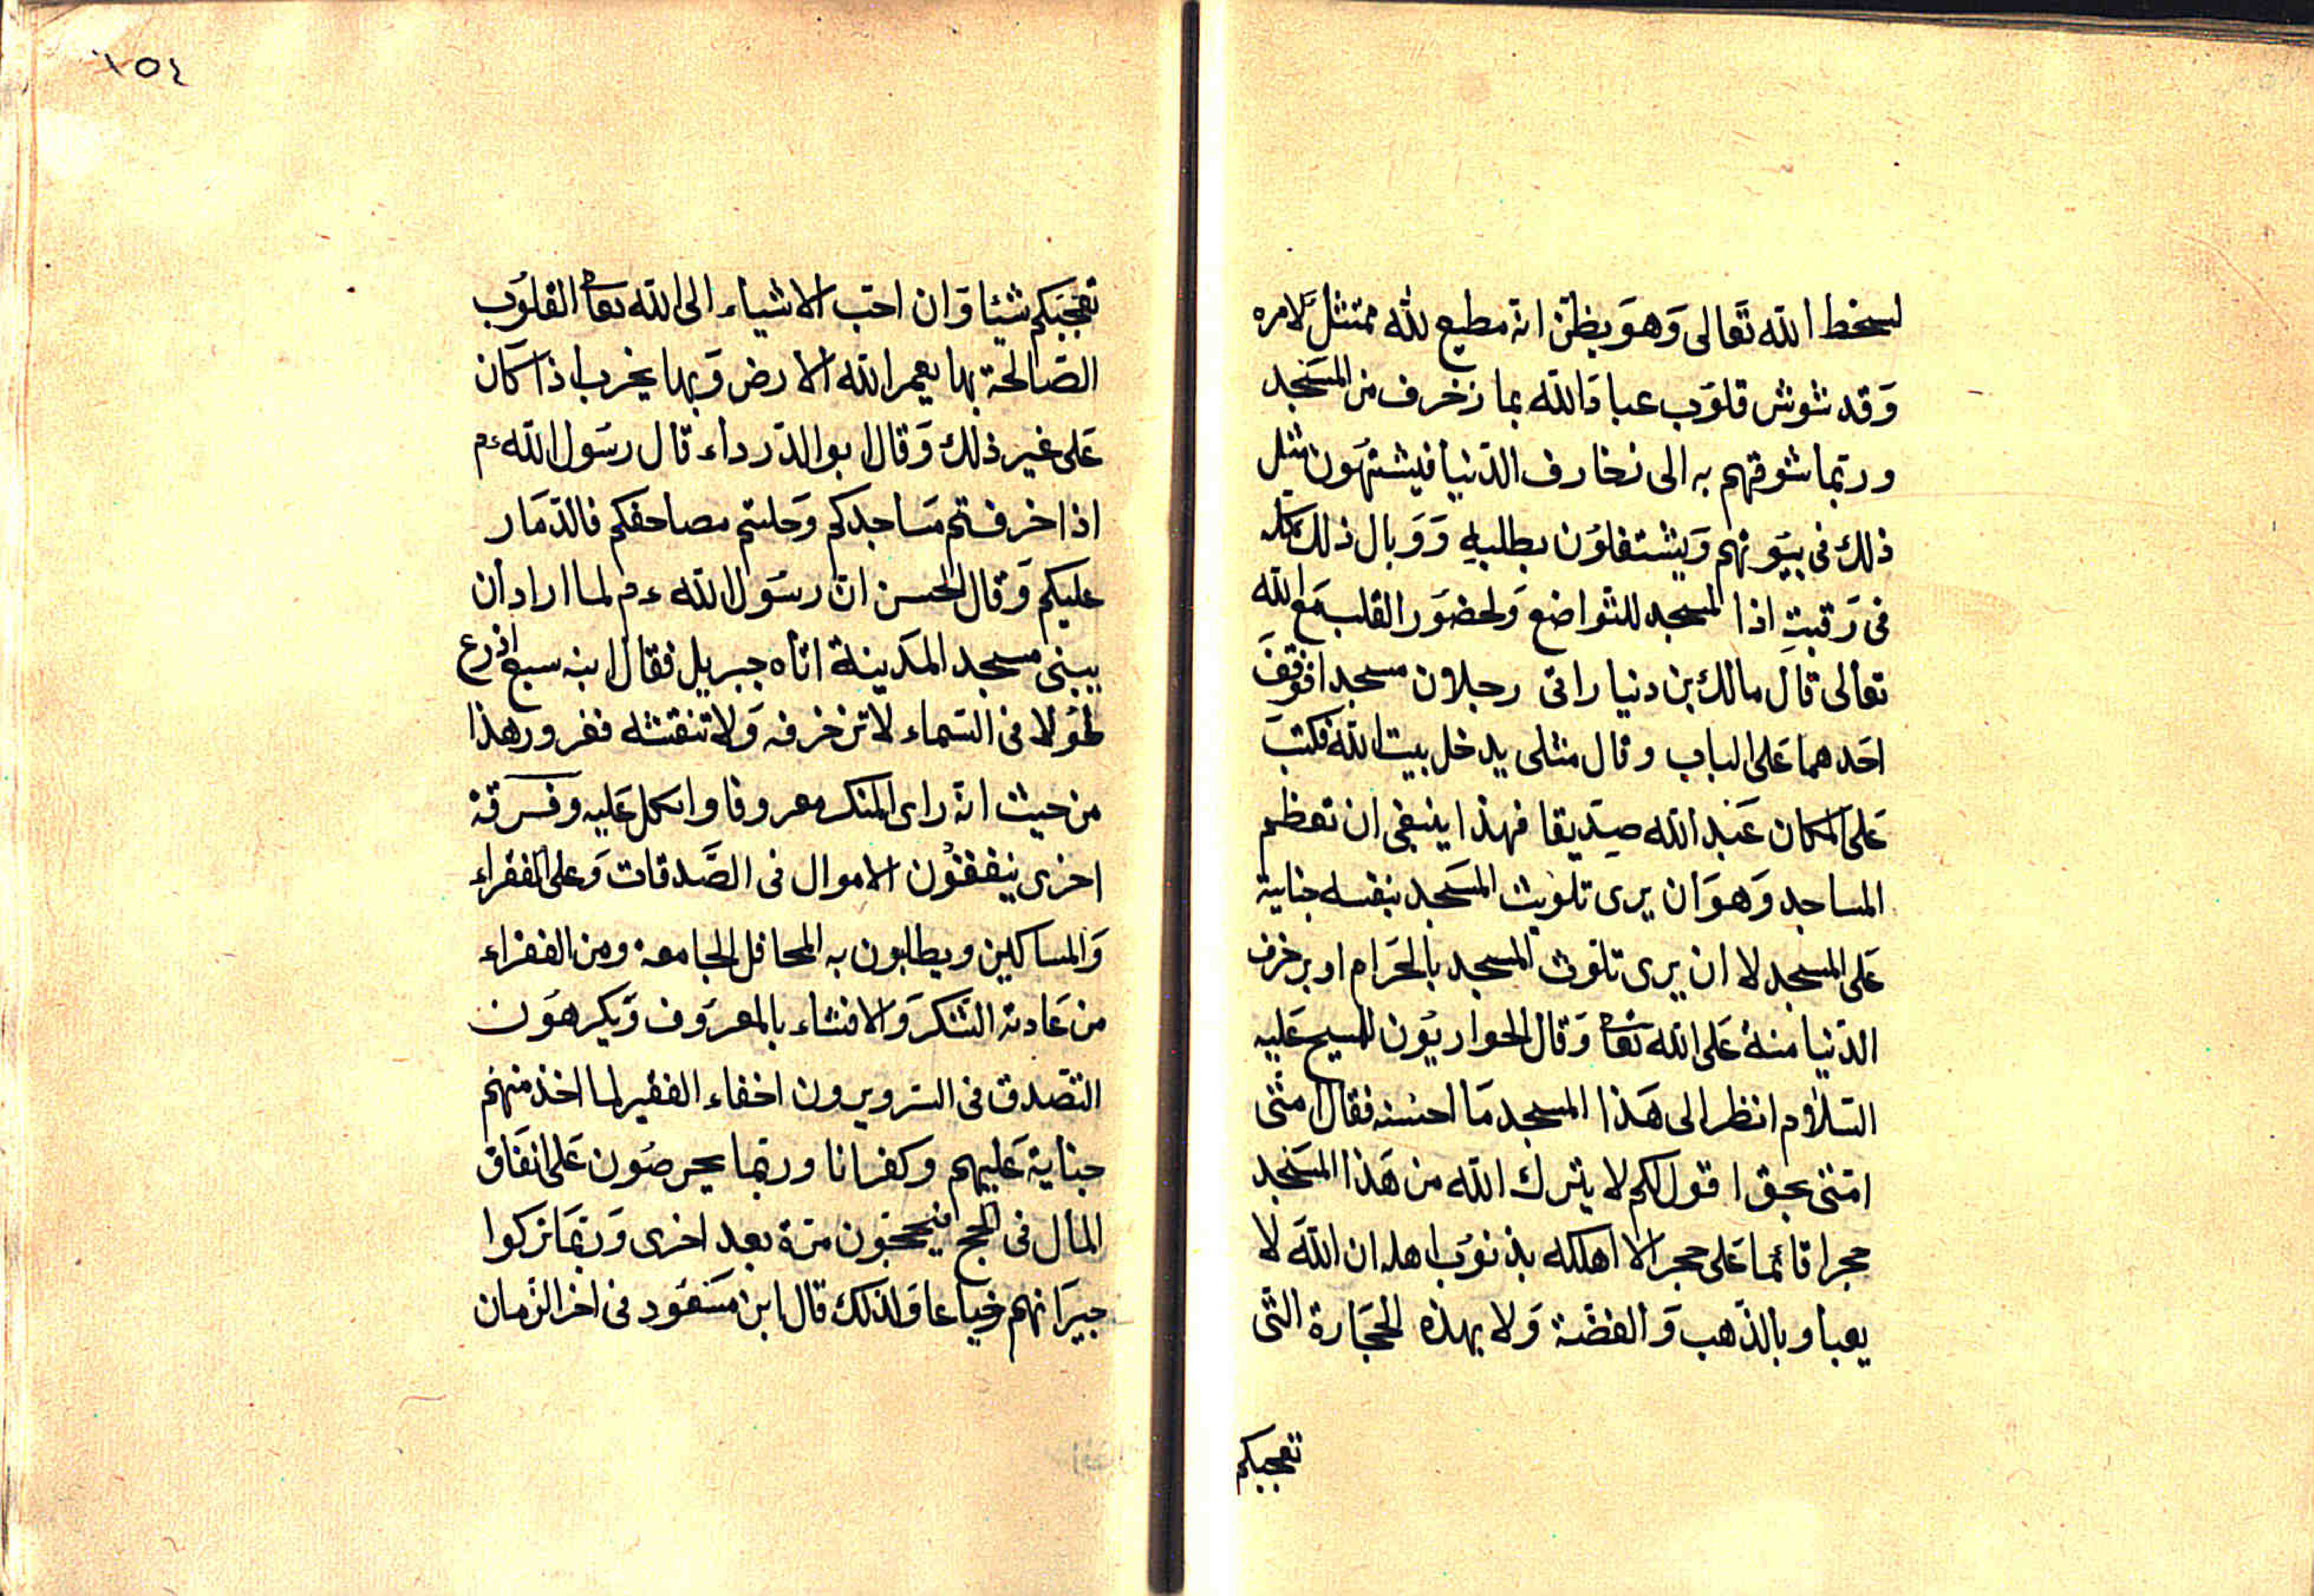 لسخط الله تعالى وهو يظن انه مطيع لله ممتثل لامره
وقد شوش قلوب عباد الله بما زخرف من المسجد
وربما شوقهم به الى زخارف الدنيا فيشتهون مثل
ذلك فى بيوتهم ويشتغلون بطلبه ووبال ذلك كله
فى رقبته اذا المسجد للتواضع ولحضور القلب مع الله
تعالى قال مالك بن دنيار اتى رجلان مسجدا فوقف
احدهما على الباب وقال مثلى يدخل بيت الله فكتب
على المكان عند الله صديقا فهذا ينبغى ان تعظم
المساجد وهو ان يرى تلويث المسجد بنفسه جناية
على المسجد لا ان يرى تلوث المسجد بالحرام او بزخرف
الدنيا منة على الله تعا وقال الحواريون للمسيح عليه
السلام انظر الى هذا المسجد ما احسنه فقال امتى
امتى بحق اقول لكم لا يترك الله من هذا المسجد
حجرا قائما على حجر الا اهلكه بذنوب اهله ان الله لا
يعباو بالذهب والفضة ولا بهذه الحجارة التى
تعجبكم
١٥٤
تعجبكم شيئا وان احب الاشياء الى الله تعا القلوب
الصالحة بها يعمر الله الارض وبها يخرب اذا كان
على غير ذلك وقال ابو الدرداء قال رسول الله ءم
اذا خرفتم مساجدكم وحليتم مصاحفكم فالدمار
عليكم وقال الحسن ان رسول الله ءم لما اراد ان
يبنى مسجد المدينة اتاه جبريل فقال ابنه سبع اذرع
طولا فى السماء لا تزخرفه ولا تنقشه فغرور هذا
من حيث انه راى المنكر معروفا واتكل عليه وفرقة
اخرى ينفقون الاموال فى الصدقات وعلى الفقراء
والمساكين ويطلبون به المحافل الجامعة ومن الفقراء
من عادته الشكر والافشاء بالمعروف ويكرهون
التصدق فى السر ويرون اخفاء الفقير لما اخذ منهم
جناية عليهم وكفرانا وربما يحرصون على انفاق
المال فى الحج فيحجون مرة بعد اخرى وربما تركوا
جيرانهم جياعا ولذلك قال ابن مسعود فى اخر الزمان